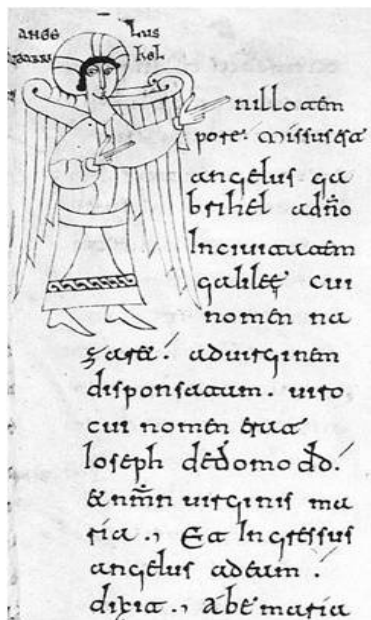 ANGE LUS
GABRI hEL
nillo tem
pore. Missus est
angelus ga
brihel ad dño
In ciuitatem
galileę cui
nomen na
zare&. ad uirginem
disponsatam. uiro
cui nomen erat
Ioseph de domo dd.
& nmn uirginis ma
ria., Et Ingressus
angelus ad eam.
dixit., Abe maria